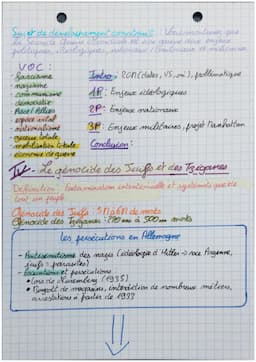 Sujet de développement construit : Vous montrerez que
la Seconde Guerre Mondiale est une guerre aux enjeux
politiques, idéologiques, nationaux, militaires
VOC :
fascisme
nazisme
communisme
démocratie
espace vital
nationalisme
guerre totale
mobilisation totale
économie de guerre
Intro : 2GM (dates, VS, ...), problématique
1P : Enjeux idéologiques
2P : Enjeux nationaux
3P : Enjeux militaires, projet Manhattan
Conclusion :
IV - Le génocide des Juifs et des Tziganes
Définition : Extermination intentionnelle et systématique de
tout un peuple
Génocide des Juifs : 5M à 6M de morts
Génocide des Tziganes : à 500 000 morts
Les persécutions en Allemagne
- Antisémitisme des nazis (idéologie d'Hitler → race Aryenne,
juifs = parasites)
- et persécutions
• Lois de Nuremberg (1935)
• Boycott de magasins, interdiction de nombreux métiers,
arrestations à partir de 1933